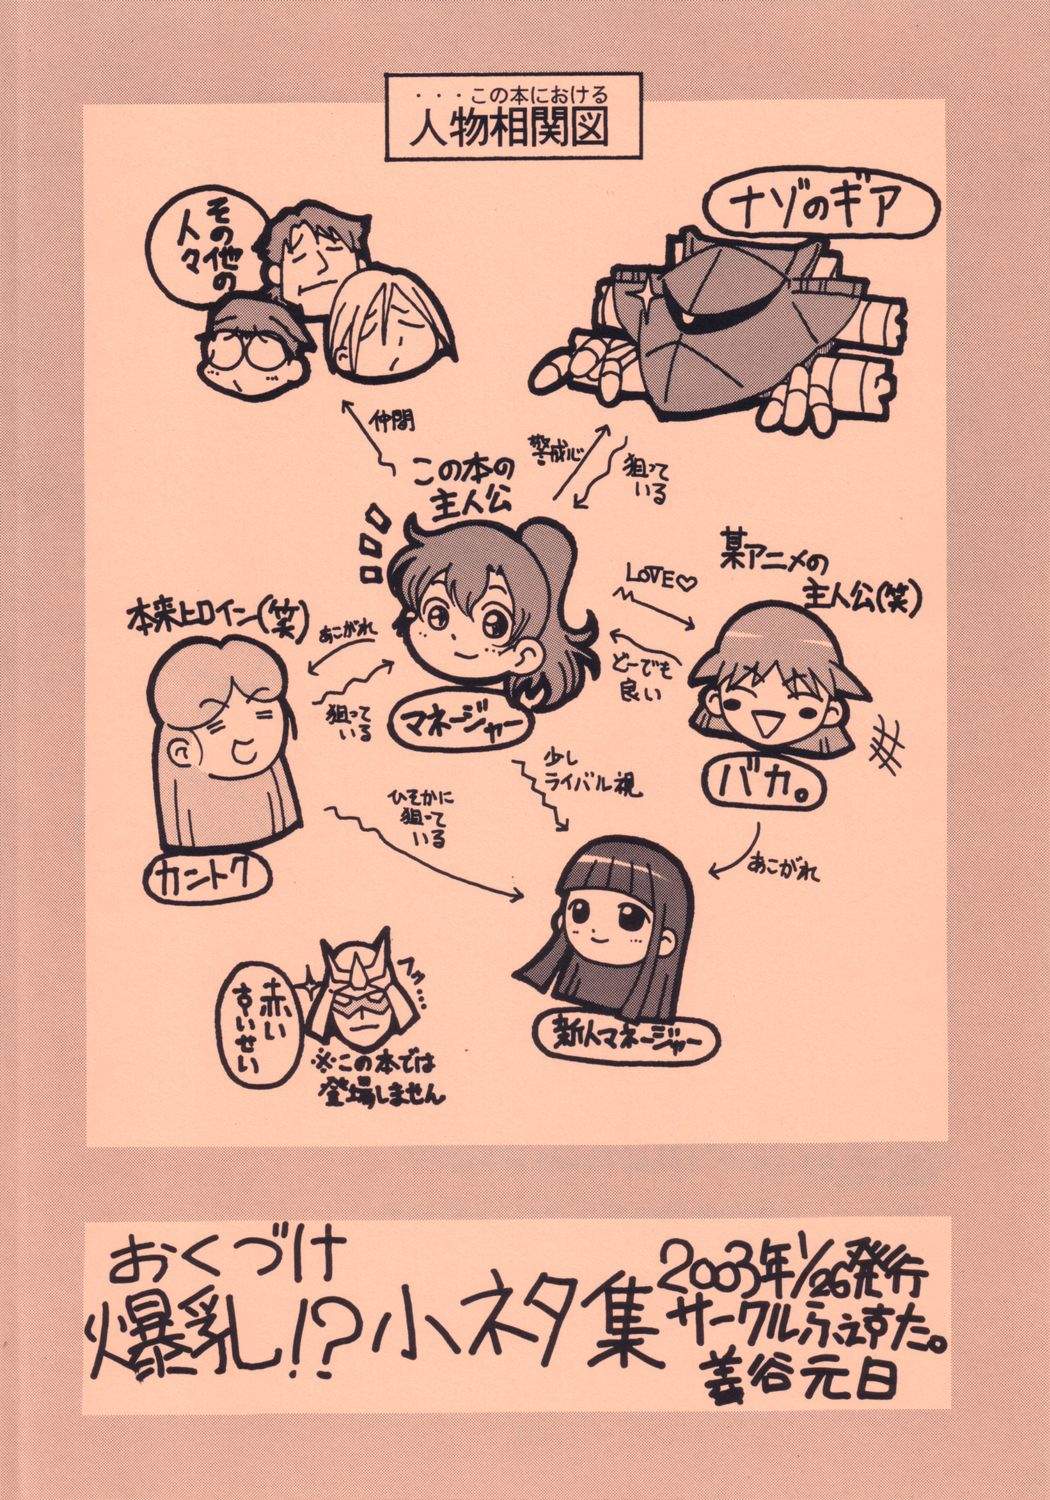 ・・・この本における
人物相関図
その他の
人々
ナゾのギア
仲間
警戒心
狙って
いる
この本の
主人公
LOVE♡
某アニメの
主人公(笑)
本来ヒロイン(笑)
あこがれ
狙って
いる
どーでも
良い
マネージャー
バカ。
少し
ライバル視
ひそかに
狙って
いる
あこがれ
カントク
新人マネージャー
赤い
すいせい
フッ…
※この本では
登場しません
おくづけ
爆乳!?小ネタ集
2003年1/26発行
サークルふぇすた。
姜谷元日